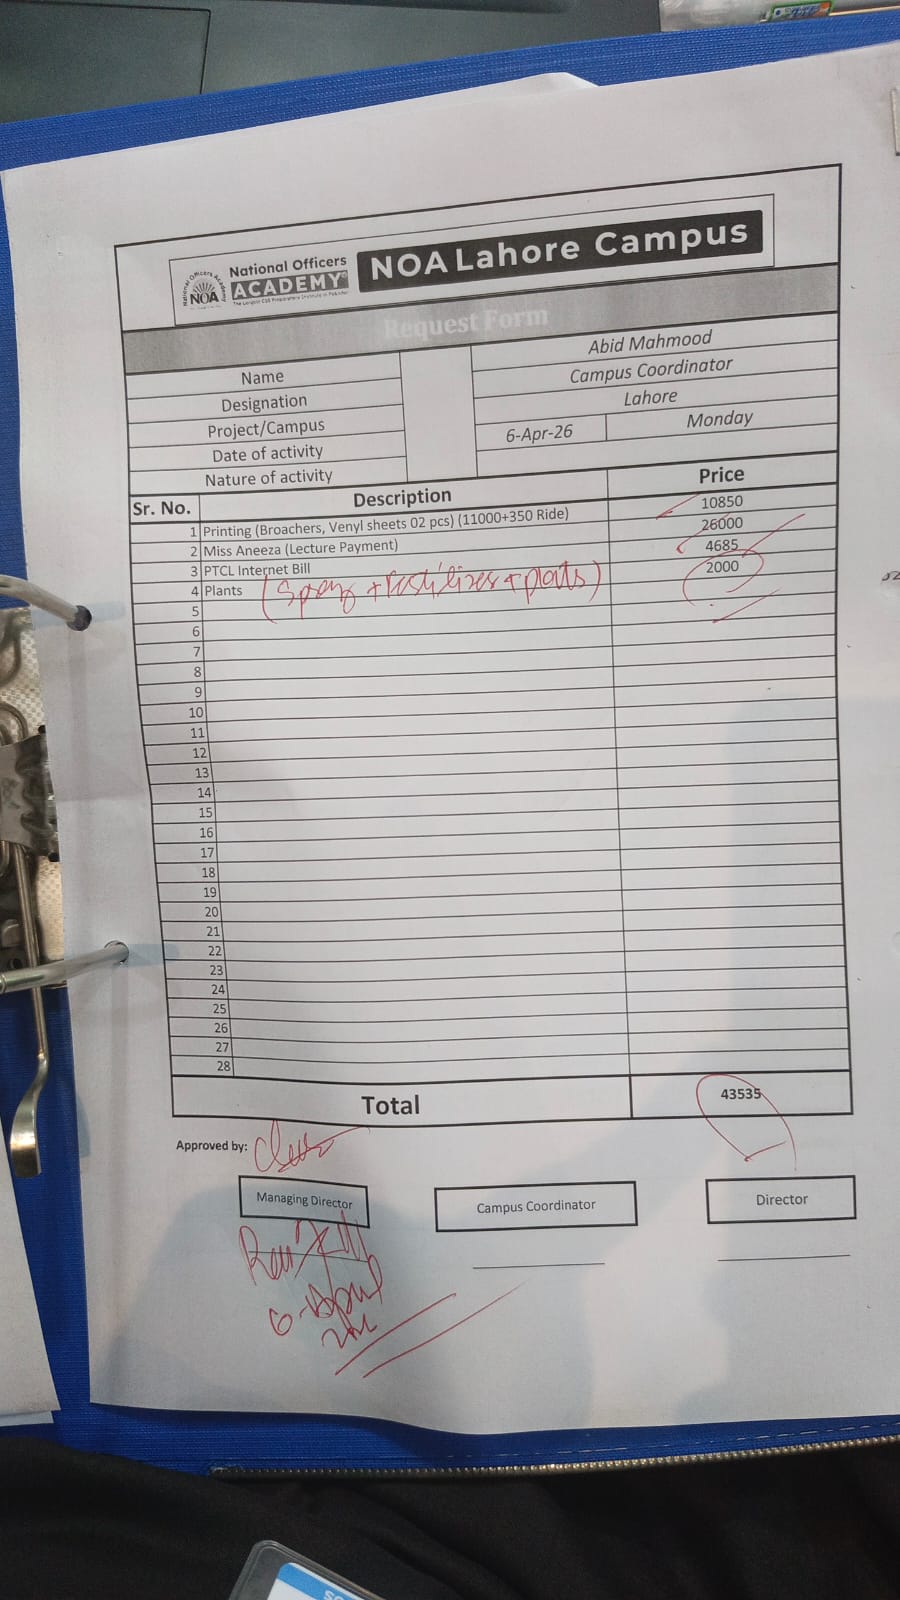 National Officers
ACADEMY
The Largest CSS Preparatory Institute in Pakistan
National Officers Academy
NOA
NOA Lahore Campus
Request Form
Name Abid Mahmood
Designation Campus Coordinator
Project/Campus Lahore
Date of activity 6-Apr-26 Monday
Nature of activity
Sr. No. Description Price
1 Printing (Broachers, Venyl sheets 02 pcs) (11000+350 Ride) 10850
2 Miss Aneeza (Lecture Payment) 26000
3 PTCL Internet Bill 4685
4 Plants (Spray + Fertilizers + plants) 2000
5
6
7
8
9
10
11
12
13
14
15
16
17
18
19
20
21
22
23
24
25
26
27
28
Total 43535
Approved by:
Managing Director Campus Coordinator Director
6-April